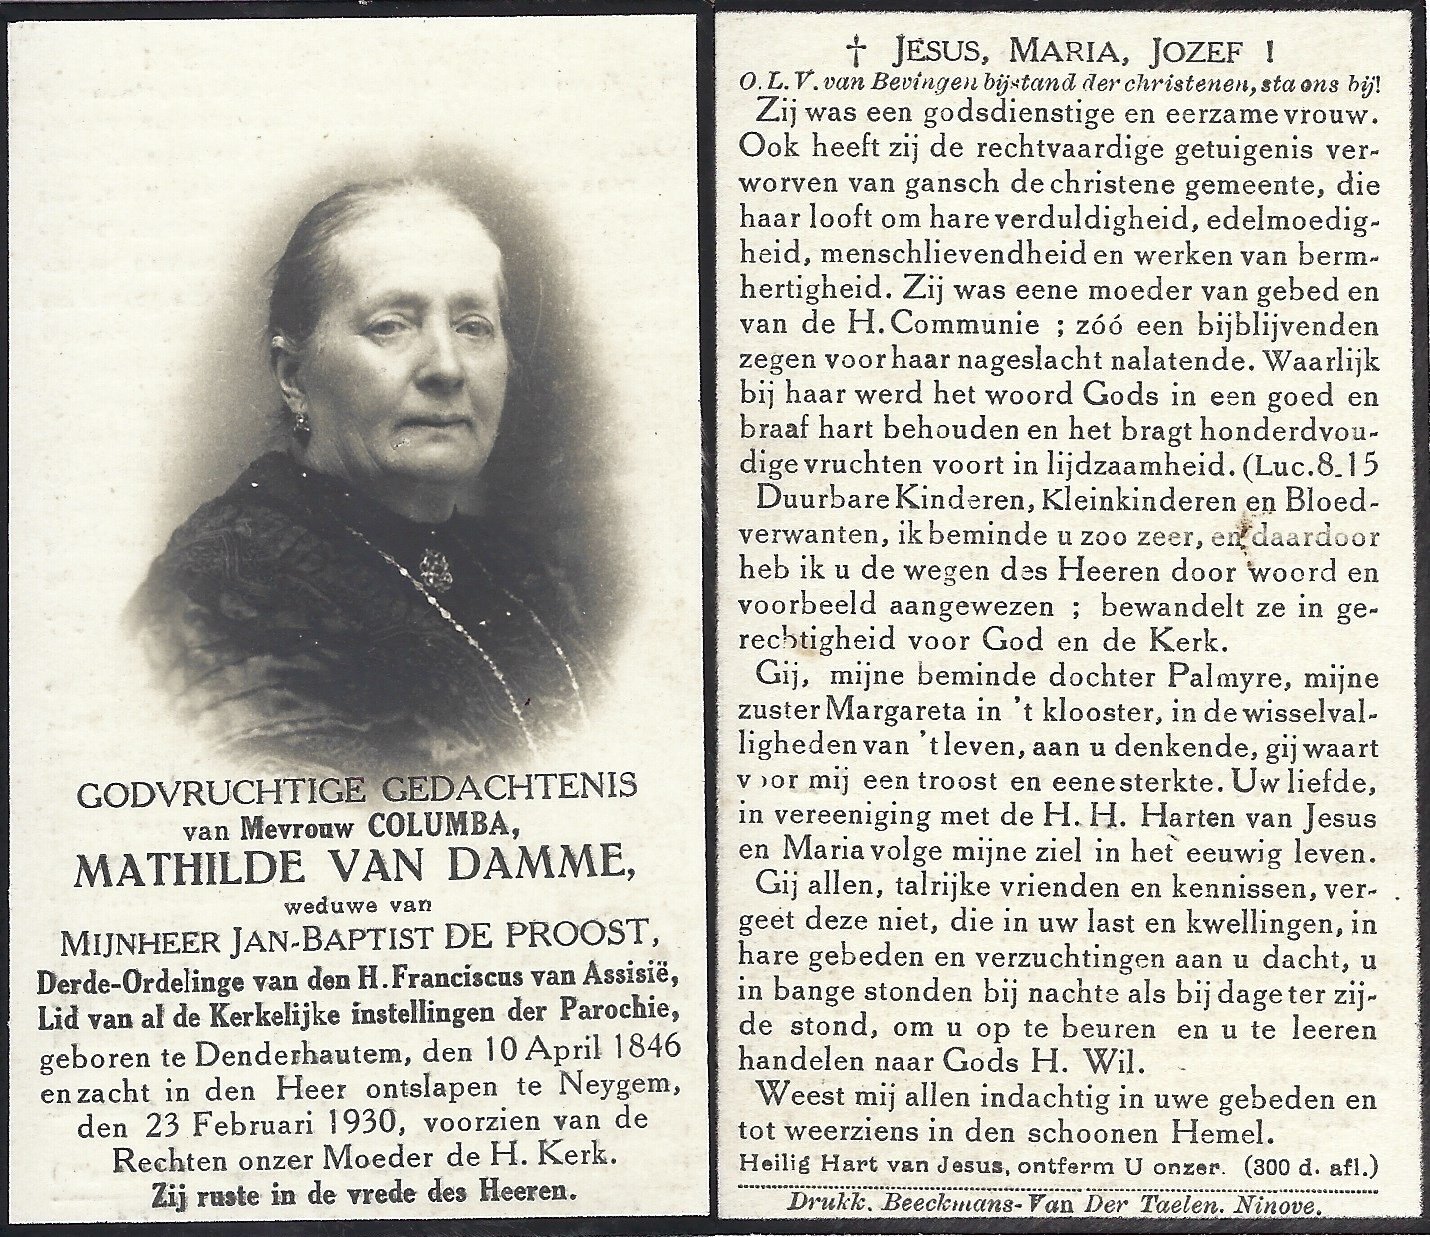 GODVRUCHTIGE GEDACHTENIS
van Mevrouw COLUMBA,
MATHILDE VAN DAMME,
weduwe van
MIJNHEER JAN-BAPTIST DE PROOST,
Derde-Ordelinge van den H. Franciscus van Assisië,
Lid van al de Kerkelijke instellingen der Parochie,
geboren te Denderhautem, den 10 April 1846
en zacht in den Heer ontslapen te Neygem,
den 23 Februari 1930, voorzien van de
Rechten onzer Moeder de H. Kerk.
Zij ruste in de vrede des Heeren.
† JESUS, MARIA, JOZEF !
O. L. V. van Bevingen bijstand der christenen, sta ons bij!
Zij was een godsdienstige en eerzame vrouw.
Ook heeft zij de rechtvaardige getuigenis ver-
worven van gansch de christene gemeente, die
haar looft om hare verduldigheid, edelmoedig-
heid, menschlievendheid en werken van berm-
hertigheid. Zij was eene moeder van gebed en
van de H. Communie ; zóó een bijblijvenden
zegen voor haar nageslacht nalatende. Waarlijk
bij haar werd het woord Gods in een goed en
braaf hart behouden en het bragt honderdvou-
dige vruchten voort in lijdzaamheid. (Luc. 8-15
Duurbare Kinderen, Kleinkinderen en Bloed-
verwanten, ik beminde u zoo zeer, en daardoor
heb ik u de wegen des Heeren door woord en
voorbeeld aangewezen ; bewandelt ze in ge-
rechtigheid voor God en de Kerk.
Gij, mijne beminde dochter Palmyre, mijne
zuster Margareta in 't klooster, in de wisselval-
ligheden van 't leven, aan u denkende, gij waart
voor mij een troost en eene sterkte. Uw liefde,
in vereeniging met de H. H. Harten van Jesus
en Maria volge mijne ziel in het eeuwig leven.
Gij allen, talrijke vrienden en kennissen, ver-
geet deze niet, die in uw last en kwellingen, in
hare gebeden en verzuchtingen aan u dacht, u
in bange stonden bij nachte als bij dage ter zij-
de stond, om u op te beuren en u te leeren
handelen naar Gods H. Wil.
Weest mij allen indachtig in uwe gebeden en
tot weerziens in den schoonen Hemel.
Heilig Hart van Jesus, ontferm U onzer. (300 d. afl.)
Drukk. Beeckmans-Van Der Taelen. Ninove.